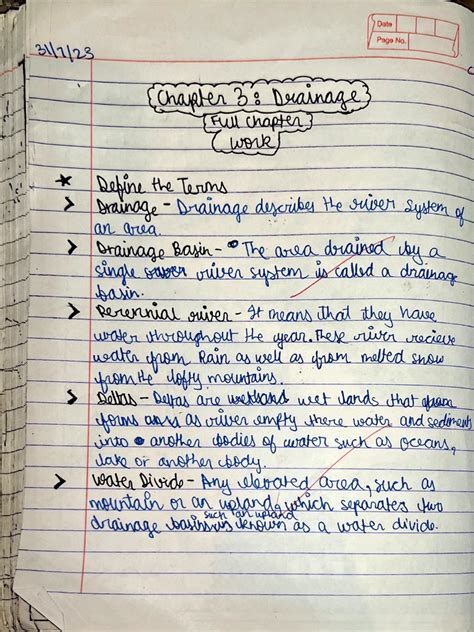 Date
Page No.
31/7/23
Chapter 3: Drainage
Full Chapter
Work
* Define the Terms
> Drainage - Drainage describes the river system of
an area.
> Drainage Basin - The area drained by a
single river system is called a drainage
basin.
> Perennial river - It means that they have
water throughout the year. These river recieve
water from Rain as well as from melted snow
from the lofty mountains.
> Deltas - Deltas are wetland wet lands that
forms as river empty there water and sediments
into another bodies of water such as oceans,
lake or another body.
> Water Divide - Any elevated area, such as
mountain or an upland, which separates two
such an upland
drainage basins is known as a water divide.